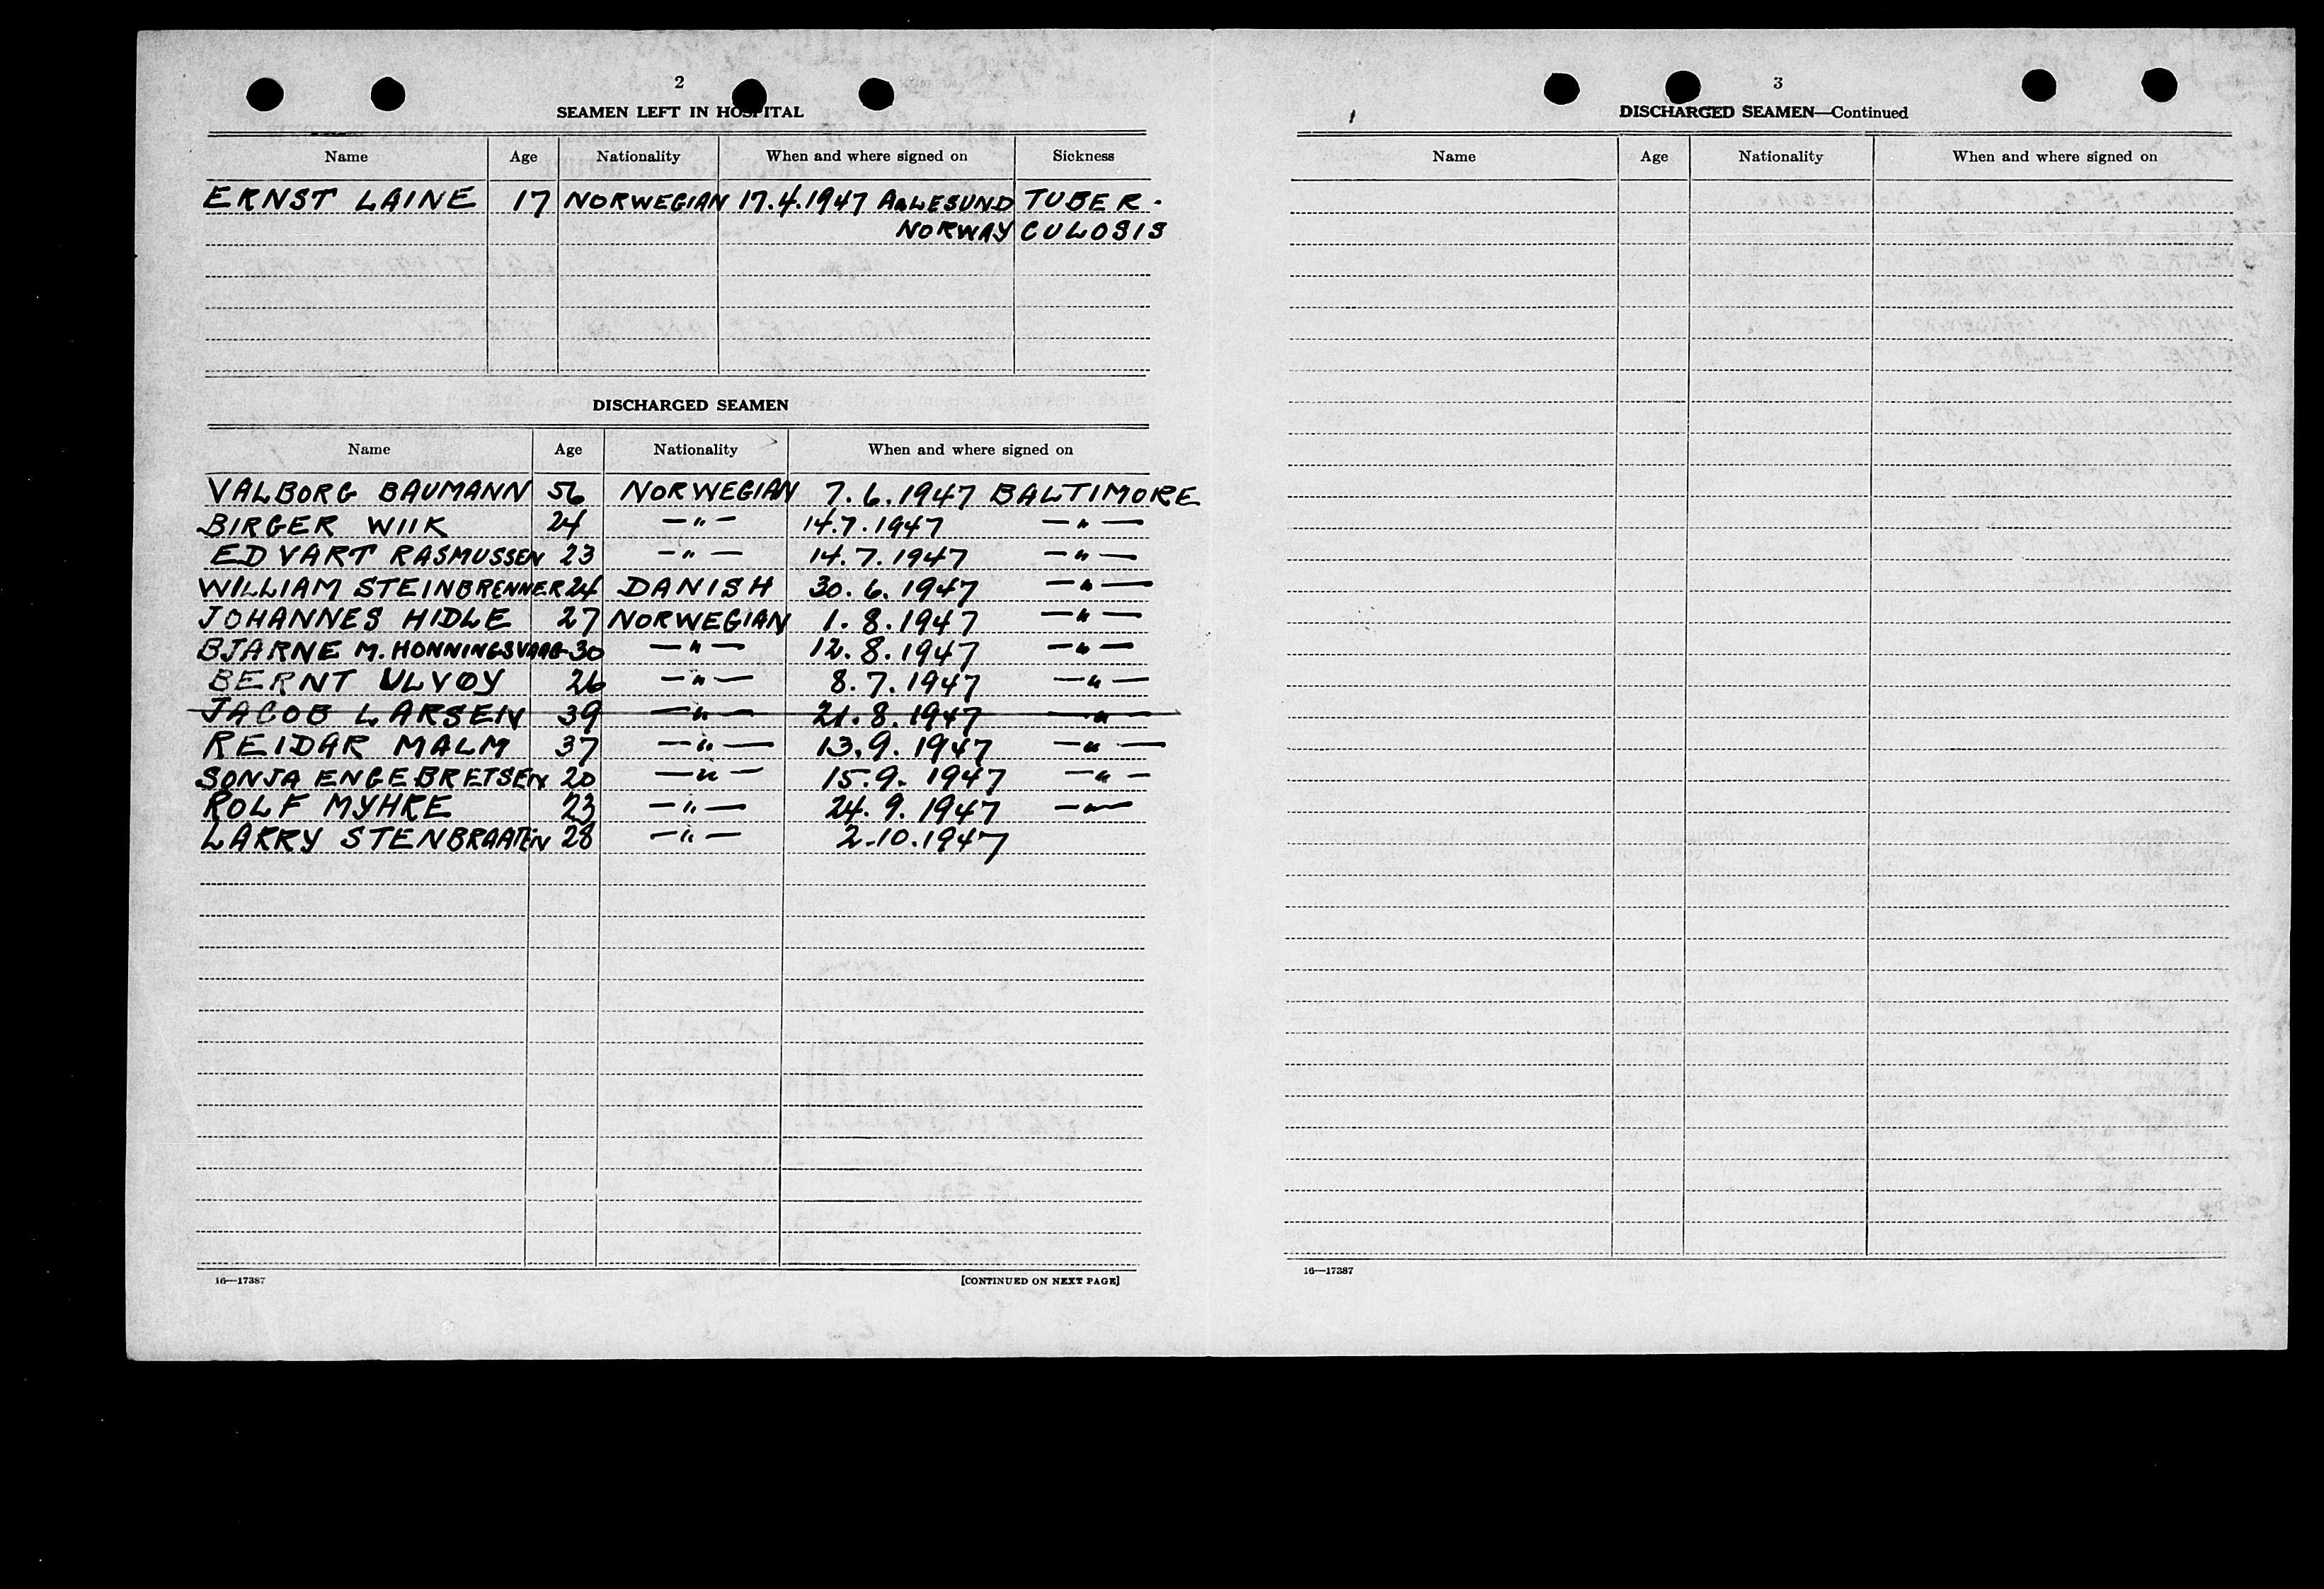 2
SEAMEN LEFT IN HOSPITAL
Name Age Nationality When and where signed on Sickness
ERNST LAINE 17 NORWEGIAN 17.4.1947 AALESUND TUBER-
NORWAY CULOSIS
DISCHARGED SEAMEN
Name Age Nationality When and where signed on
VALBORG BAUMANN 56 NORWEGIAN 7.6.1947 BALTIMORE
BIRGER WIIK 24 —"— 14.7.1947 —"—
EDVART RASMUSSEN 23 —"— 14.7.1947 —"—
WILLIAM STEINBRENNER 24 DANISH 30.6.1947 —"—
JOHANNES HIDLE 27 NORWEGIAN 1.8.1947 —"—
BJARNE M. HONNINGSVAAG 30 —"— 12.8.1947 —"—
BERNT ULVØY 26 —"— 8.7.1947 —"—
JACOB LARSEN 39 —"— 21.8.1947 —"—
REIDAR MALM 37 —"— 13.9.1947 —"—
SONJA ENGEBRETSEN 20 —"— 15.9.1947 —"—
ROLF MYHRE 23 —"— 24.9.1947 —"—
LARRY STENBRAATEN 28 —"— 2.10.1947
16—17387 [CONTINUED ON NEXT PAGE]
3
DISCHARGED SEAMEN—Continued
Name Age Nationality When and where signed on
16—17387